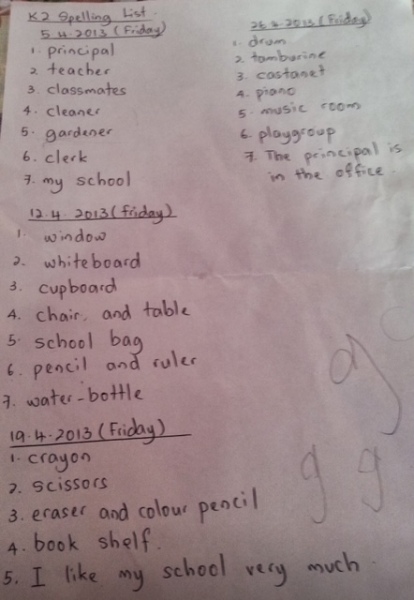 K2 Spelling List.
5.4.2013 (Friday)
1. principal
2. teacher
3. classmates
4. cleaner
5. gardener
6. clerk
7. my school
12.4.2013 (Friday)
1. window
2. whiteboard
3. cupboard
4. chair and table
5. school bag
6. pencil and ruler
7. water-bottle
19.4.2013 (Friday)
1. crayon
2. scissors
3. eraser and colour pencil
4. book shelf.
5. I like my school very much.
26.4.2013 (Friday)
1. drum
2. tambourine
3. castanet
4. piano
5. music room
6. playgroup
7. The principal is
in the office.
g
g g